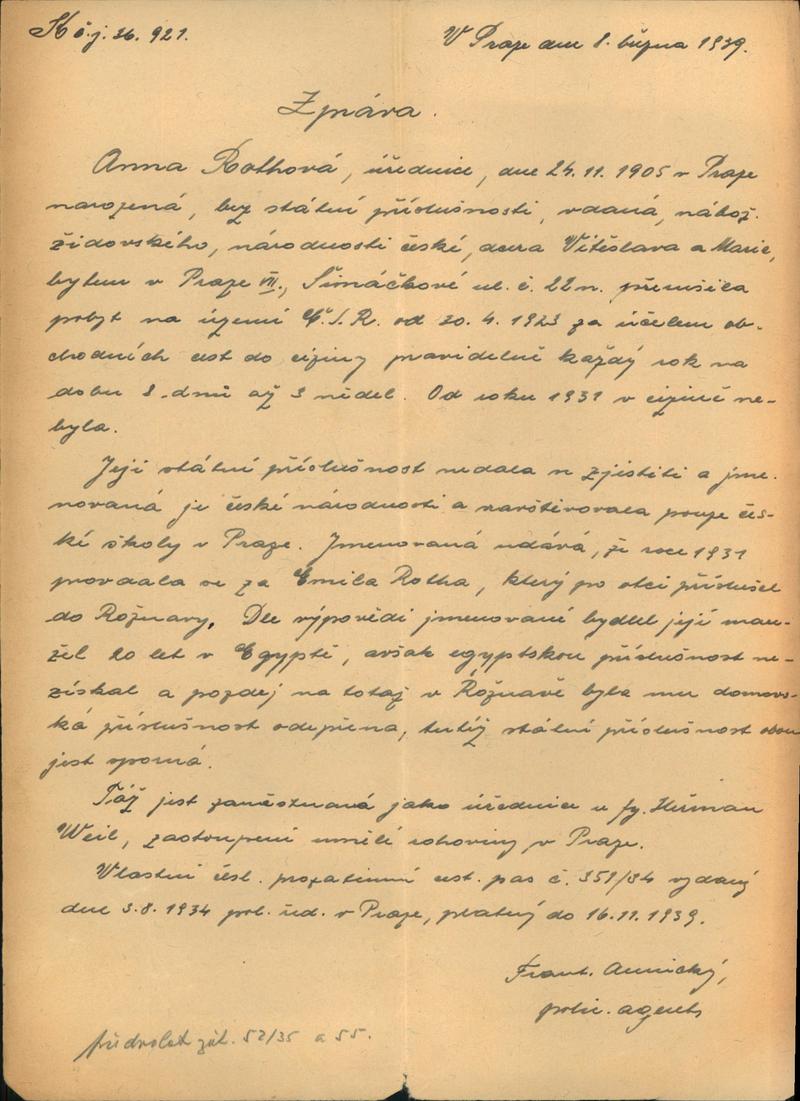 K č.j. 36.921.
V Praze dne 8. března 1939.
Zpráva.
Anna Rothová, úřednice, dne 24.11.1905 v Praze
narozená, bez státní příslušnosti, vdaná, nábož.
židovského, národnosti české, dcera Vítěslava a Marie,
bytem v Praze VII., Šimáčkově ul. č. 22 n. přerušila
pobyt na území Č.S.R. od 20.4.1923 za účelem ob-
chodních cest do ciziny pravidelně každý rok na
dobu 8 dnů až 3 neděl. Od roku 1931 v cizině ne-
byla.
Její státní příslušnost nedala se zjistiti a jme-
novaná je české národnosti a navštěvovala pouze čes-
ké školy v Praze. Jmenovaná udává, že roce 1931
provdala se za Emila Rotha, který po otci příslušel
do Rožnavy. Dle výpovědi jmenované bydlel její man-
žel 20 let v Egyptě, avšak egyptskou příslušnost ne-
získal a pozdej na totaž v Rožnavě byla mu domovs-
ká příslušnost odepřena, tudíž státní příslušnost obou
jest sporná.
Táž jest zaměstnaná jako úřednice u fy. Heřman
Weil, zastoupení umělé rohoviny v Praze.
Vlastní čsl. prozatimní cest. pas č. 351/34 vydaný
dne 3.8.1934 pol. řed. v Praze, platný do 16.11.1939.
Frant.
polic. agent
předvolat 52/35 a 55.